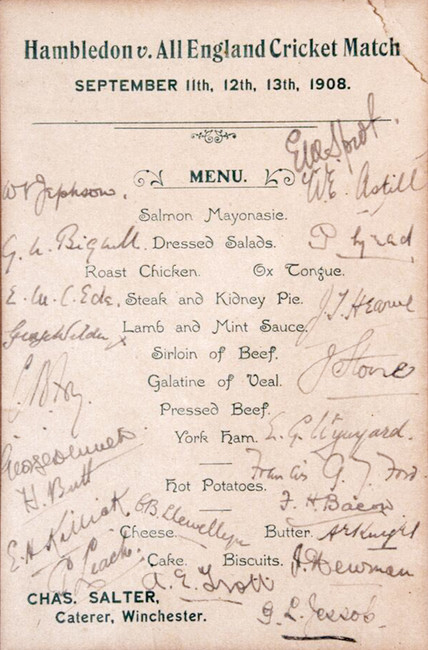 Hambledon v. All England Cricket Match
SEPTEMBER 11th, 12th, 13th, 1908.
MENU.
W. E. Astill
Salmon Mayonasie.
Dressed Salads.
Roast Chicken. Ox Tongue.
Steak and Kidney Pie.
J. T. Hearne
Lamb and Mint Sauce.
Sirloin of Beef.
C B Fry
Galatine of Veal.
J Stone
Pressed Beef.
York Ham.
E. G. Wynyard.
George Dennett
Francis G. J. Ford
H. Butt
Hot Potatoes.
F. H. Bacon
E H Killick
C B Llewellyn
Cheese. Butter.
A E Knight
Cake. Biscuits.
J. Newman
A. E. Trott
CHAS. SALTER,
G. L. Jessop.
Caterer, Winchester.